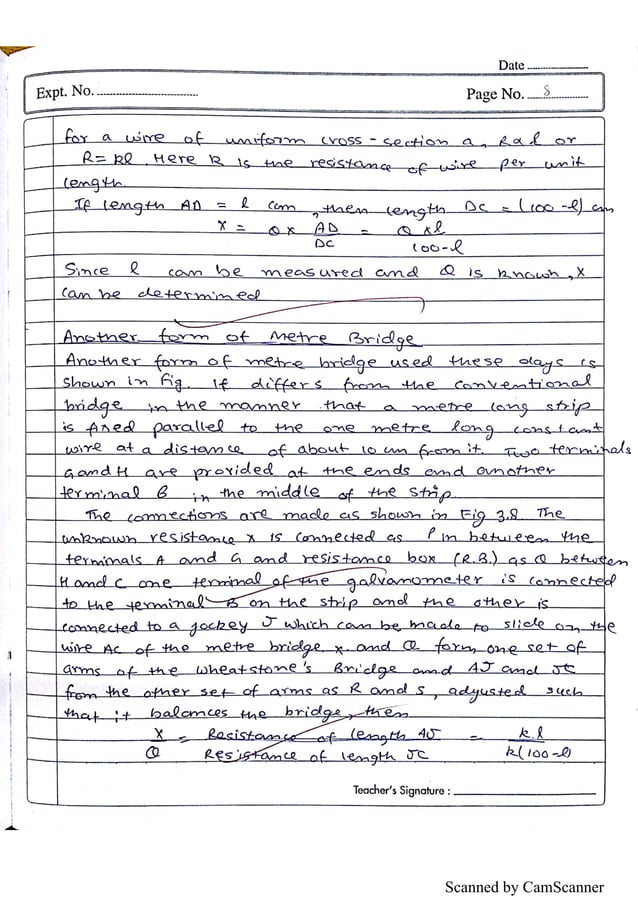 Date
Expt. No.
Page No. 8
for a wire of uniform cross-section a, R α l or
R = kl. Here k is the resistance of wire per unit
length.
If length AD = l cm, then length DC = (100-l) cm
X = Q x AD/DC = Q x l/100-l
Since l can be measured and Q is known, X
can be determined
Another form of Metre Bridge
Another form of metre bridge used these days is
shown in fig. If differs from the conventional
bridge in the manner that a metre long strip
is fixed parallel to the one metre long constant
wire at a distance of about 10 cm from it. Two terminals
G and H are provided at the ends and another
terminal B in the middle of the strip.
The connections are made as shown in Fig 3.8. The
unknown resistance X is connected as P in between the
terminals A and G and resistance box (R.B.) as Q between
H and C one terminal of the galvanometer is connected
to the terminal B on the strip and the other is
connected to a jockey J which can be made to slide on the
wire AC of the metre bridge. X and Q form one set of
arms of the Wheatstone's Bridge and AJ and JC
from the other set of arms as R and S, adyusted such
that it balances the bridge, then
X/Q = Resistance of length AJ/Resistance of length JC = k.l/k(100-l)
Teacher's Signature :
Scanned by CamScanner